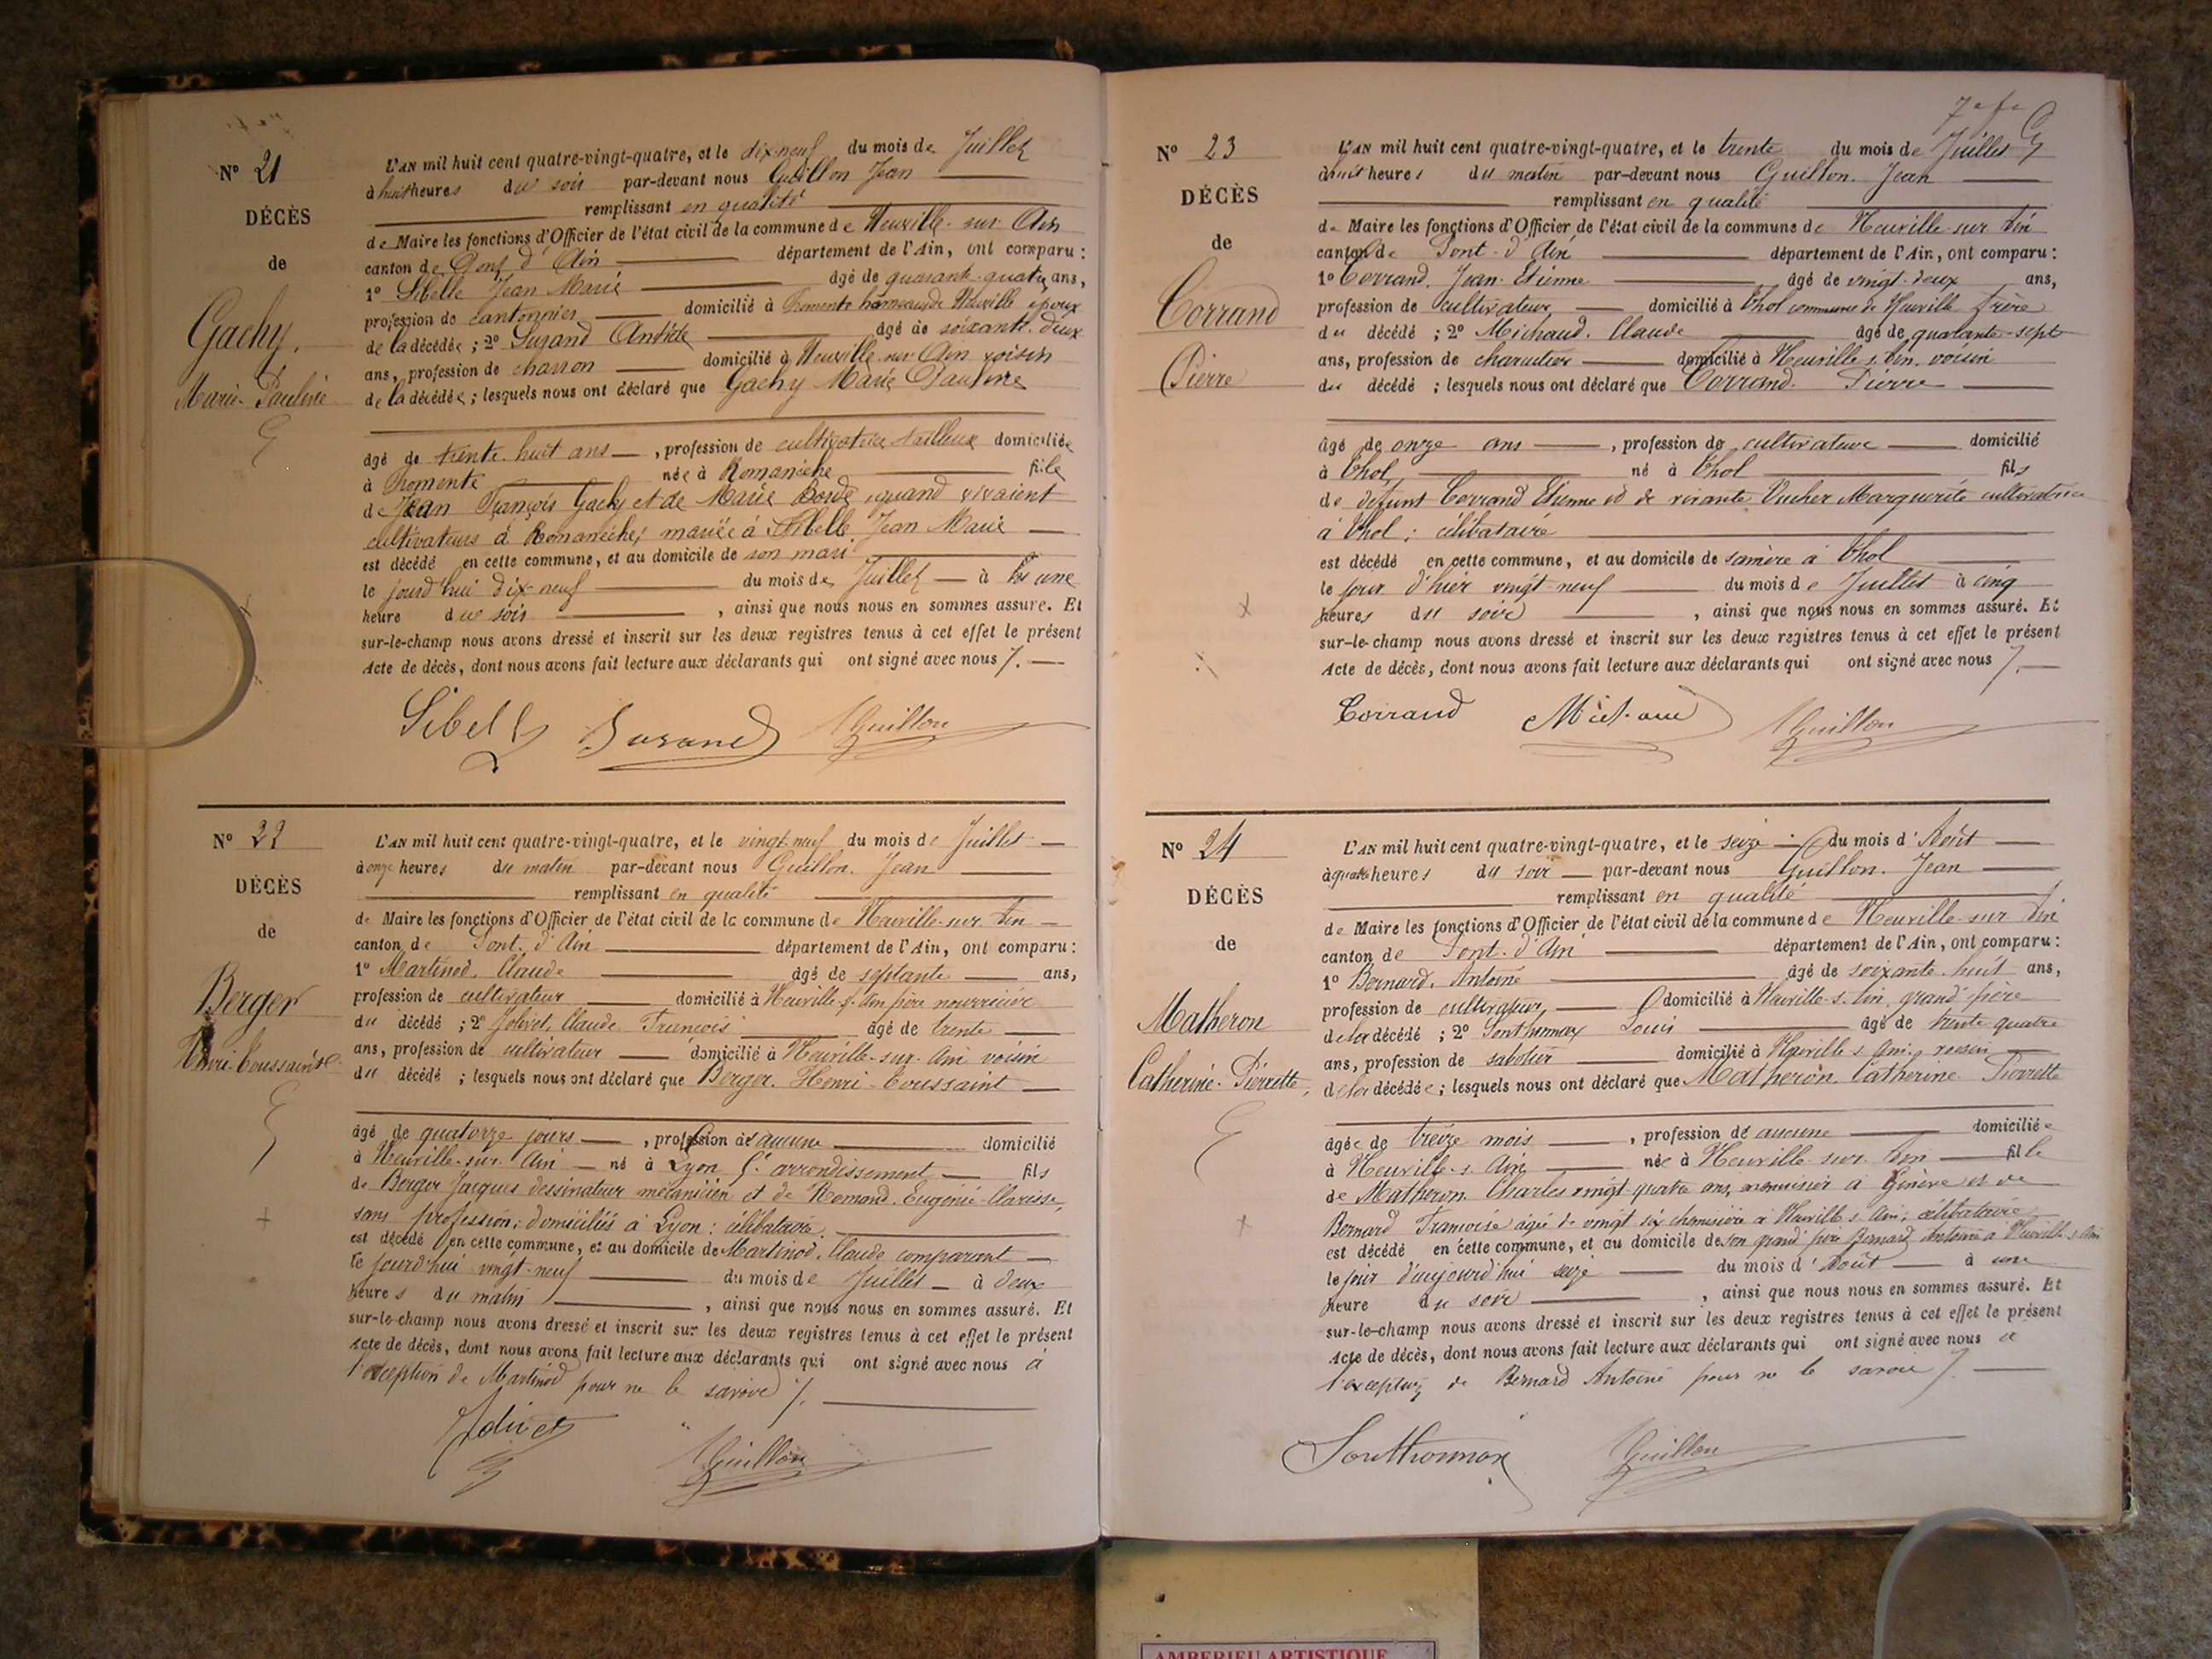 Nº 21
DÉCÈS
de
Gachy
Marie-Pauline
L'AN mil huit cent quatre-vingt-quatre, et le dix-neuf du mois de Juillet
à huit heures du soir par-devant nous Guillon Jean
remplissant en qualité
de Maire les fonctions d'Officier de l'état civil de la commune de Neuville-sur-Ain
canton de Pont d'Ain département de l'Ain, ont comparu :
1º Sibelle Jean Marie âgé de quarante-quatre ans,
profession de cantonnier domicilié à hameau de Neuville époux
de la décédée ; 2º âgé de soixante-deux
ans, profession de charron domicilié à Neuville-sur-Ain voisin
de la décédée ; lesquels nous ont déclaré que Gachy Marie Pauline
âgé de trente-huit ans, profession de cultivatrice domiciliée
à née à Romanèche fille
de Jean François Gachy et de Marie Borde quand vivaient
cultivateurs à Romanèche, mariée à Sibelle Jean Marie
est décédé en cette commune, et au domicile de son mari
le jourd'hui dix-neuf du mois de Juillet à une
heure du soir, ainsi que nous nous en sommes assuré. Et
sur-le-champ nous avons dressé et inscrit sur les deux registres tenus à cet effet le présent
Acte de décès, dont nous avons fait lecture aux déclarants qui ont signé avec nous
Sibelle Guillon
Nº 22
DÉCÈS
de
Berger
Henri-Toussaint
L'AN mil huit cent quatre-vingt-quatre, et le vingt-neuf du mois de Juillet
à onze heures du matin par-devant nous Guillon Jean
remplissant en qualité
de Maire les fonctions d'Officier de l'état civil de la commune de Neuville-sur-Ain
canton de Pont-d'Ain département de l'Ain, ont comparu :
1º Martinod, Claude âgé de septante ans,
profession de cultivateur domicilié à Neuville-s-Ain père nourricier
du décédé ; 2º Jolivet, Claude François âgé de trente
ans, profession de cultivateur domicilié à Neuville-sur-Ain voisin
du décédé ; lesquels nous ont déclaré que Berger Henri-Toussaint
âgé de quatorze jours, profession de aucune domicilié
à Neuville-sur-Ain né à Lyon arrondissement fils
de Berger Jacques dessinateur mécanicien et de Romand Eugénie-Clarisse,
sans profession, domiciliés à Lyon : célibataire
est décédé en cette commune, et au domicile de Martinod, Claude comparant
le jourd'hui vingt-neuf du mois de Juillet à deux
heures du matin, ainsi que nous nous en sommes assuré. Et
sur-le-champ nous avons dressé et inscrit sur les deux registres tenus à cet effet le présent
Acte de décès, dont nous avons fait lecture aux déclarants qui ont signé avec nous à
l'exception de Martinod pour ne le savoir
Jolivet Guillon
Nº 23
DÉCÈS
de
Corrand
Pierre
L'AN mil huit cent quatre-vingt-quatre, et le trente du mois de Juillet
à huit heures du matin par-devant nous Guillon Jean
remplissant en qualité
de Maire les fonctions d'Officier de l'état civil de la commune de Neuville-sur-Ain
canton de Pont-d'Ain département de l'Ain, ont comparu :
1º Corrand, Jean-Etienne âgé de vingt-deux ans,
profession de cultivateur domicilié à Thol commune de Neuville frère
du décédé ; 2º Michaud, Claude âgé de quarante-sept
ans, profession de charcutier domicilié à Neuville s. Ain, voisin
du décédé ; lesquels nous ont déclaré que Corrand Pierre
âgé de onze ans, profession de cultivateur domicilié
à Thol, né à Thol fils
de défunt Corrand Etienne et de vivante Vucher Marguerite cultivatrice
à Thol ; célibataire
est décédé en cette commune, et au domicile de sa mère à Thol
le jour d'hier vingt-neuf du mois de Juillet à cinq
heures du soir, ainsi que nous nous en sommes assuré. Et
sur-le-champ nous avons dressé et inscrit sur les deux registres tenus à cet effet le présent
Acte de décès, dont nous avons fait lecture aux déclarants qui ont signé avec nous
Corrand Michaud Guillon
Nº 24
DÉCÈS
de
Matheron
Catherine-Pierrette
L'AN mil huit cent quatre-vingt-quatre, et le seize du mois d'Août
à quatre heures du soir par-devant nous Guillon Jean
remplissant en qualité
de Maire les fonctions d'Officier de l'état civil de la commune de Neuville-sur-Ain
canton de Pont-d'Ain département de l'Ain, ont comparu :
1º Bernard, Antoine âgé de soixante-huit ans,
profession de cultivateur domicilié à Neuville-s-Ain, grand-père
de la décédé ; 2º Sonthonnax Louis âgé de trente-quatre
ans, profession de sabotier domicilié à Neuville s Ain, voisin
de la décédée ; lesquels nous ont déclaré que Matheron Catherine Pierrette
âgée de treize mois, profession de aucune domiciliée
à Neuville-s-Ain née à Neuville-sur-Ain fille
de Matheron Charles vingt-quatre ans, menuisier à Genève et de
Bernard Françoise âgée de vingt six à Neuville s Ain ; célibataire
est décédé en cette commune, et au domicile de son grand père Bernard Antoine à Neuville s Ain
le jour d'aujourd'hui seize du mois d'Août à une
heure du soir, ainsi que nous nous en sommes assuré. Et
sur-le-champ nous avons dressé et inscrit sur les deux registres tenus à cet effet le présent
Acte de décès, dont nous avons fait lecture aux déclarants qui ont signé avec nous à
l'exception de Bernard Antoine pour ne le savoir
Sonthonnax Guillon
AMBERIEU ARTISTIQUE